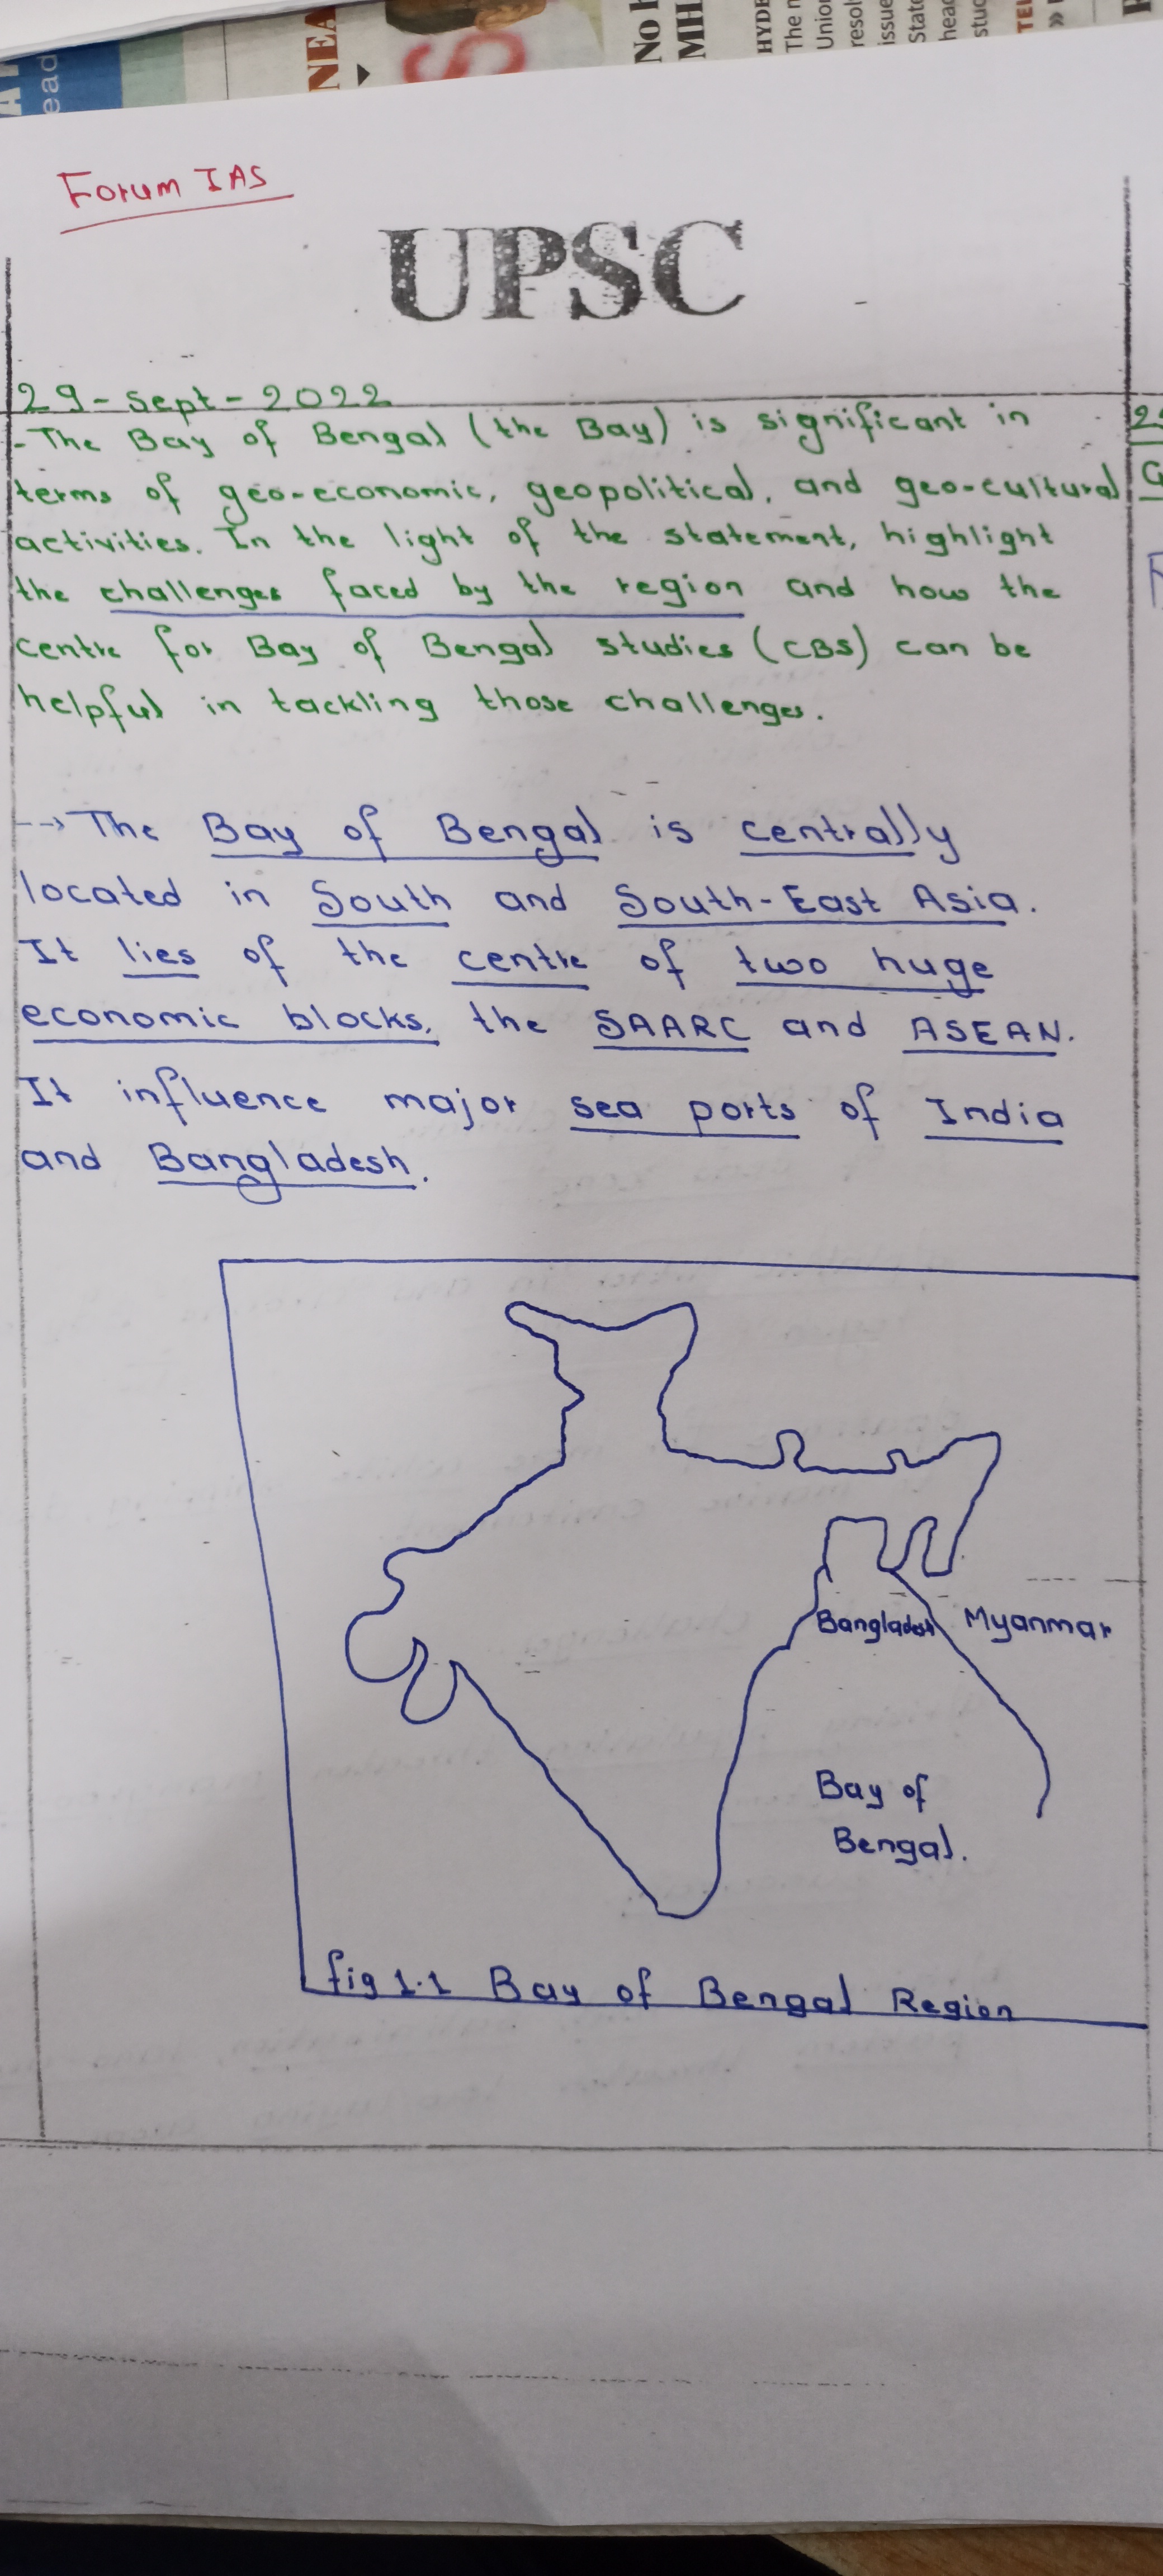 NEA
No
MH
HYDE
The
Union
resol
issue
State
head
stud
ead
Forum IAS
UPSC
29-Sept-2022
- The Bay of Bengal (the Bay) is significant in
terms of geo-economic, geopolitical, and geo-cultural
activities. In the light of the statement, highlight
the challenges faced by the region and how the
centre for Bay of Bengal studies (CBS) can be
helpful in tackling those challenges.
--> The Bay of Bengal is centrally
located in South and South-East Asia.
It lies of the centre of two huge
economic blocks, the SAARC and ASEAN.
It influence major sea ports of India
and Bangladesh.
Bangladesh Myanmar
Bay of
Bengal.
fig 1.1 Bay of Bengal Region